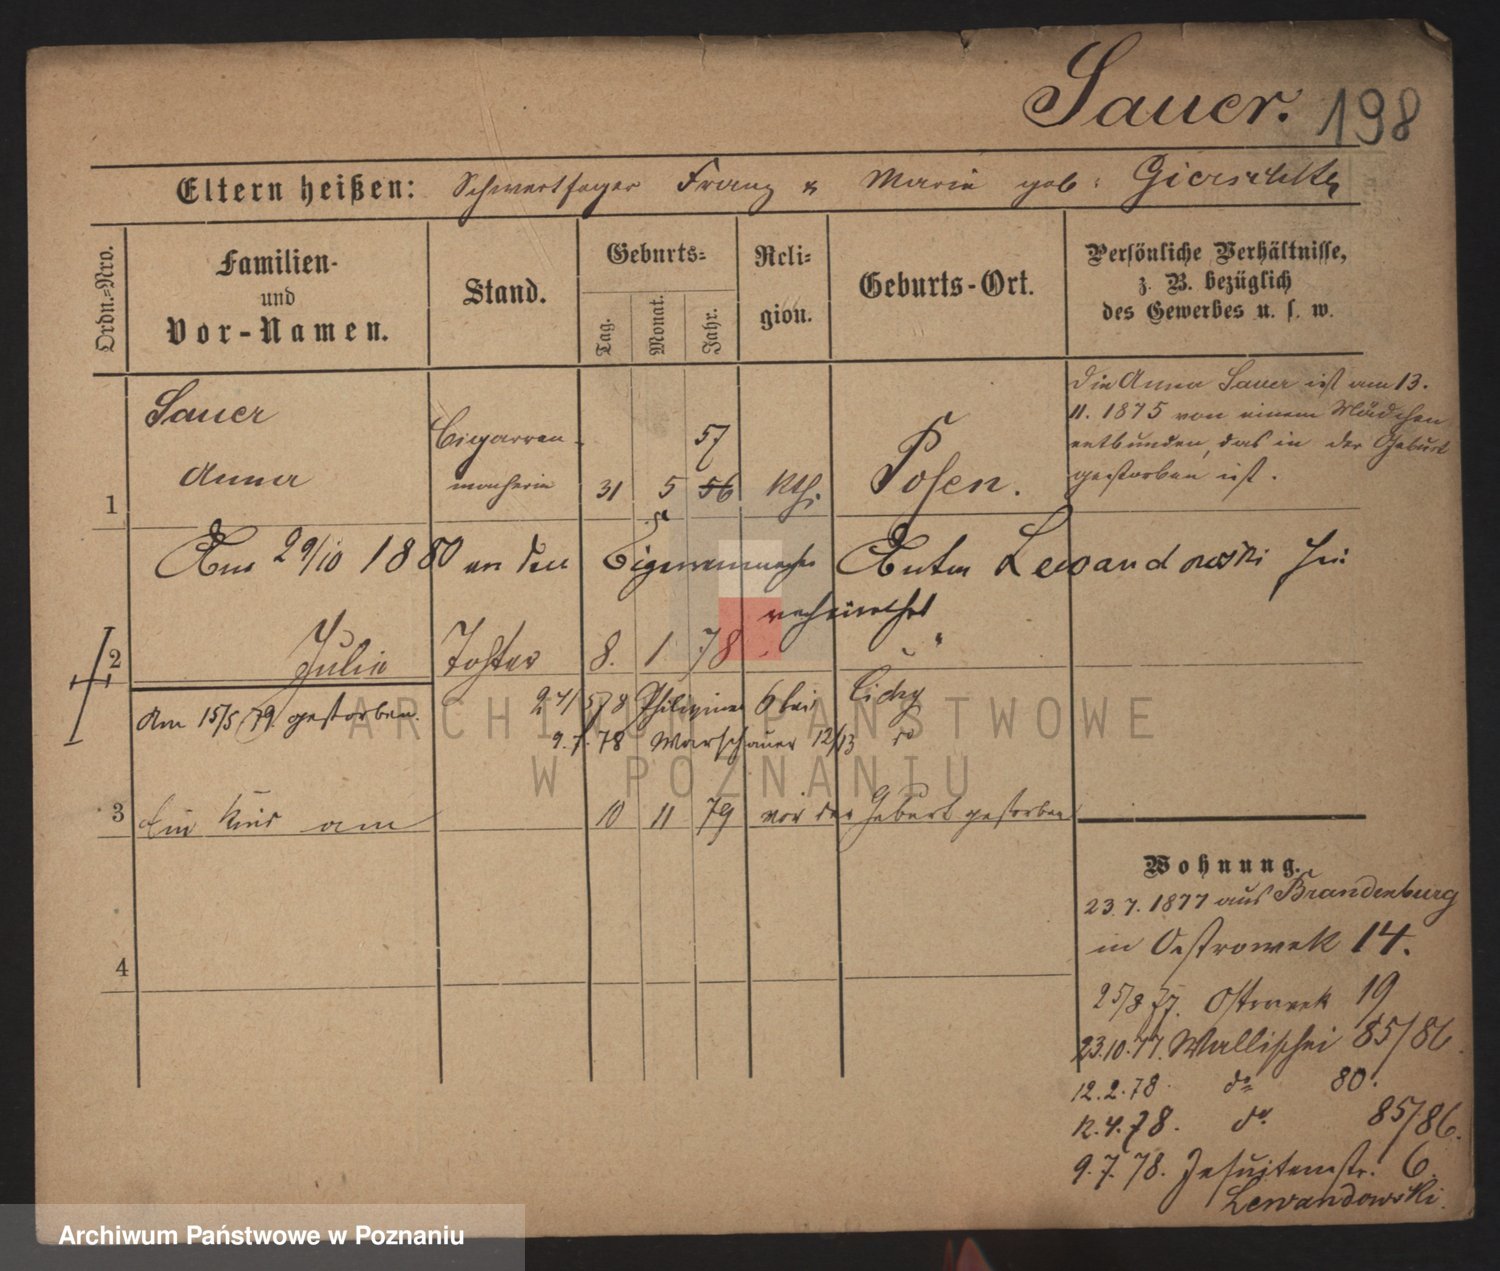 Sauer. 198
Eltern heißen: Schwertfeger Franz & Marie geb: Gierschke
Ordn.=Nro.
Familien-
und
Vor-Namen.
Stand.
Geburts=
Tag.
Monat.
Jahr.
Reli=
gion.
Geburts-Ort.
Persönliche Verhältnisse,
z. B. bezüglich
des Gewerbes u. s. w.
1
Sauer
Anna
Cigarren-
macherin
31 5 57
56
kth.
Posen.
Die Anna Sauer ist am 13.
11. 1875 von einem Mädchen
entbunden, das in der Geburt
gestorben ist.
Am 29/10 1880 an den Cigarrenmacher Anton Lewandowski
verheirathet
2 Julie Tochter 8. 1 78 "
Am 15/5 79. gestorben.
78 Philippine bei Cichy
9.7.78 Warschauer 12/13
3 Ein Kind am 10 11 79 vor der Geburt gestorben
4
Wohnung.
23.7.1877 aus Brandenburg
in Ostrowek 14.
25/8 77. Ostrowek 19
23.10.77. Wallischei 85/86.
12.2.78. do 80.
12.4.78. do 85/86.
9.7.78. Jesuitenstr. 6.
Lewandowski.
ARCHIWUM PAŃSTWOWE
W POZNANIU
Archiwum Państwowe w Poznaniu